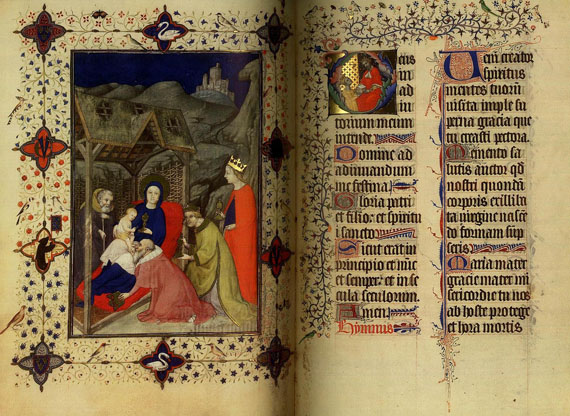 eus
in
ad
iu
torium meum
intende
Domine ad
adiuuandum
me festina
Gloria patri
et filio et spiritu
i sancto
Sicut erat in
principio et nūc
et semper et in se
cula seculorum.
Amen
Hymnus
Ueni creator
spiritus
mentes tuorū
uisita imple su
perna gracia que
tu creasti pectora.
Memento sa
lutis auctor qd
nostri quondā
corporis ex illiba
ta uirgine nascē
do formam sup
seris
Maria mater
gracie mater mi
sericordie tu nos
ab hoste protege
et hora mortis